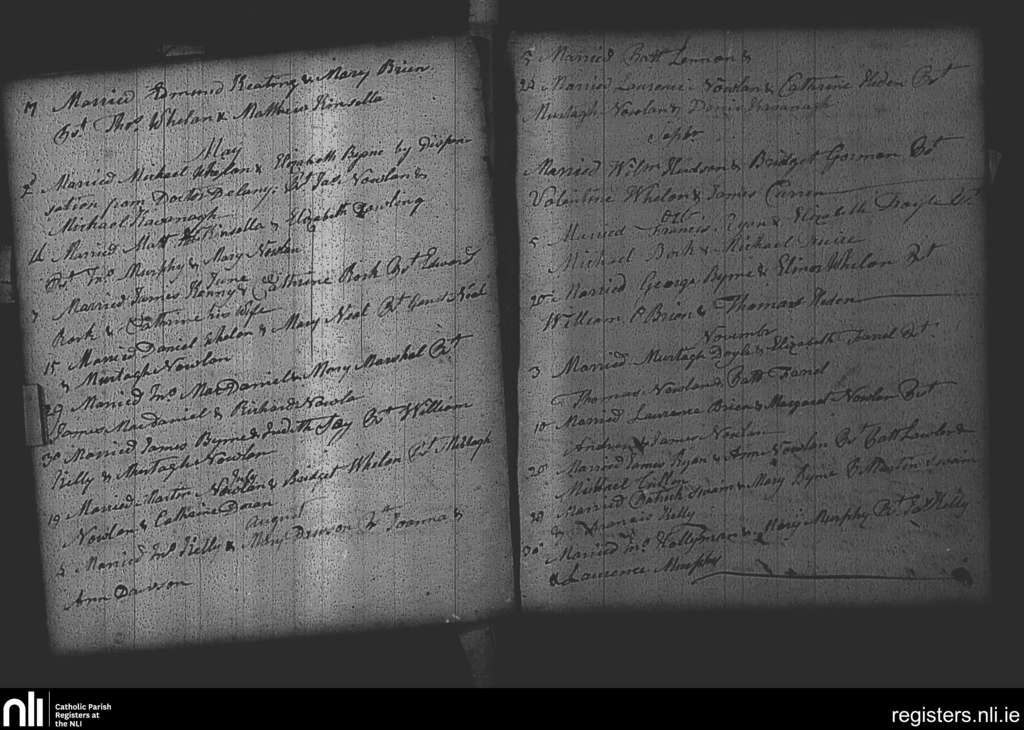 17 Married Edmund Keating & Mary Brien
Pst. Thos. Whelan & Matthew Kinsella
May
Married Michael Whelan & Elizabeth Byrne by dispen
sation from Doctor Delany. Pst Jas. Nowlan &
Michael Kavanagh
Married Matt Kinsella & Elizabeth Dawling
Pst. Jno. Murphy & Mary Nowlan
June
7 Married James & Cathrine Rork Pst Edward
Rork & Cathrine his Wife
15 Married Daniel Whelan & Mary Neal Pst Neal
& Murtagh Nowlan
29 Married Jno. MacDaniel & Mary Marshel Pst
James MacDaniel & Richard Nowla
30 Married James Byrne & Judith Pst William
Kelly & Murtagh Nowlan
July
19 Married Martin Nowlan & Bridget Whelan Pst.
Nowlan & Catharine Doran
August
5 Married Jno. Kelly & Mary Joanna &
Ann Dawson
5 Married Patt Lennon &
24 Married Laurence Nowlan & Cathrine Heden Pst
Murtagh Nowlan & Kavanagh
Sepbr
Married Wilm Hudson & Bridget Gorman Pst
Valentine Whelan & James Curren
Octr.
5 Married Francis Ryan & Elizabeth Pst.
Michael & Michael
20 Married George Byrne & Elinor Whelan Pst
William P Brien & Thomas Heden
Novembr
3 Married Murtagh Doyle & Elizabeth Farrel Pst.
Thomas Nowlan & Patt Farrel
10 Married Laurence Brien & Margaret Nowlan Pst
Andrew & James Nowlan
20 Married James Ryan & Ann Nowlan Pst Patt Lawler &
Michael
Married Patrick Swain & Mary Byrne Pt Martin Swain
& Francis Kelly
30 Married Jno. & Mary Murphy Pst Jas Kelly
& Laurence Murphy
nli Catholic Parish
Registers at
the NLI
registers.nli.ie